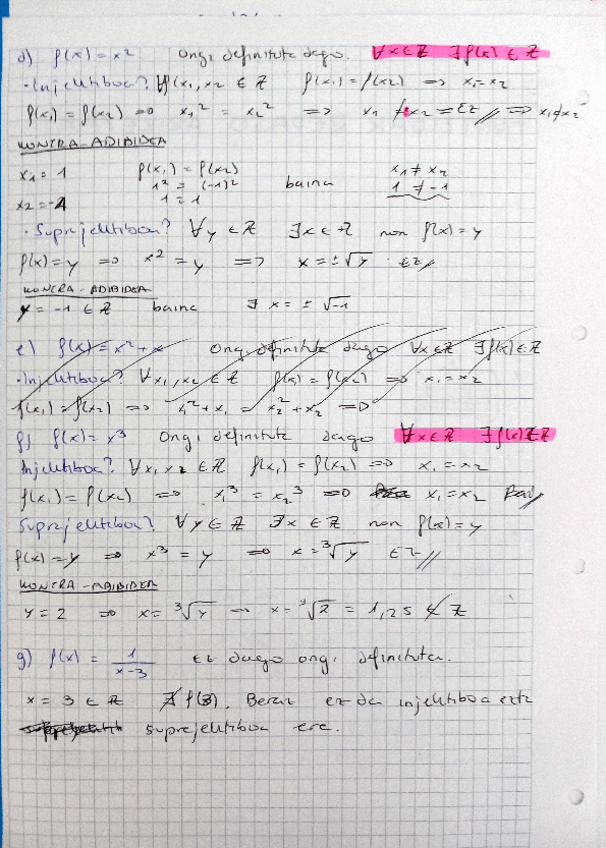 d) f(x) = x² Ongi definituta dago. ∀x∈Z ∃f(x) ∈ Z
· Injektiboa? ∀x₁, x₂ ∈ Z f(x₁) = f(x₂) ⇒ x₁ = x₂
f(x₁) = f(x₂) ⇒ x₁² = x₂² ⇒ x₁ ≠ x₂ ⇒ Ez // ⇒ x₁ ≠ x₂
KONTRA-ADIBIDEA
x₁ = 1 f(x₁) = f(x₂) x₁ ≠ x₂
1² = (-1)² baina 1 ≠ -1
x₂ = -1 1 = 1
· Suprajektiboa? ∀y ∈ Z ∃x ∈ Z non f(x) = y
f(x) = y ⇒ x² = y ⇒ x = ±√y Ez //
KONTRA-ADIBIDEA
y = -1 ∈ Z baina ∄ x = ± √-1
e) f(x) = x² + x Ongi definituta dago ∀x∈Z ∃f(x)∈Z
· Injektiboa? ∀x₁, x₂ ∈ Z f(x₁) = f(x₂) ⇒ x₁ = x₂
f(x₁) = f(x₂) ⇒ x₁² + x₁ = x₂² + x₂ ⇒
f) f(x) = x³ Ongi definituta dago ∀x∈Z ∃f(x)∈Z
Injektiboa? ∀x₁, x₂ ∈ Z f(x₁) = f(x₂) ⇒ x₁ = x₂
f(x₁) = f(x₂) ⇒ x₁³ = x₂³ ⇒ x₁ = x₂ Bai //
Suprajektiboa? ∀y ∈ Z ∃x ∈ Z non f(x) = y
f(x) = y ⇒ x³ = y ⇒ x = ³√y Ez //
KONTRA-ADIBIDEA
y = 2 ⇒ x = ³√y → x = ³√2 = 1,25 ∉ Z
g) f(x) = 1/(x-3) Ez dago ongi definituta.
x = 3 ∈ Z ∄ f(3). Beraz ez da injektiboa ezta
suprajektiboa ere.